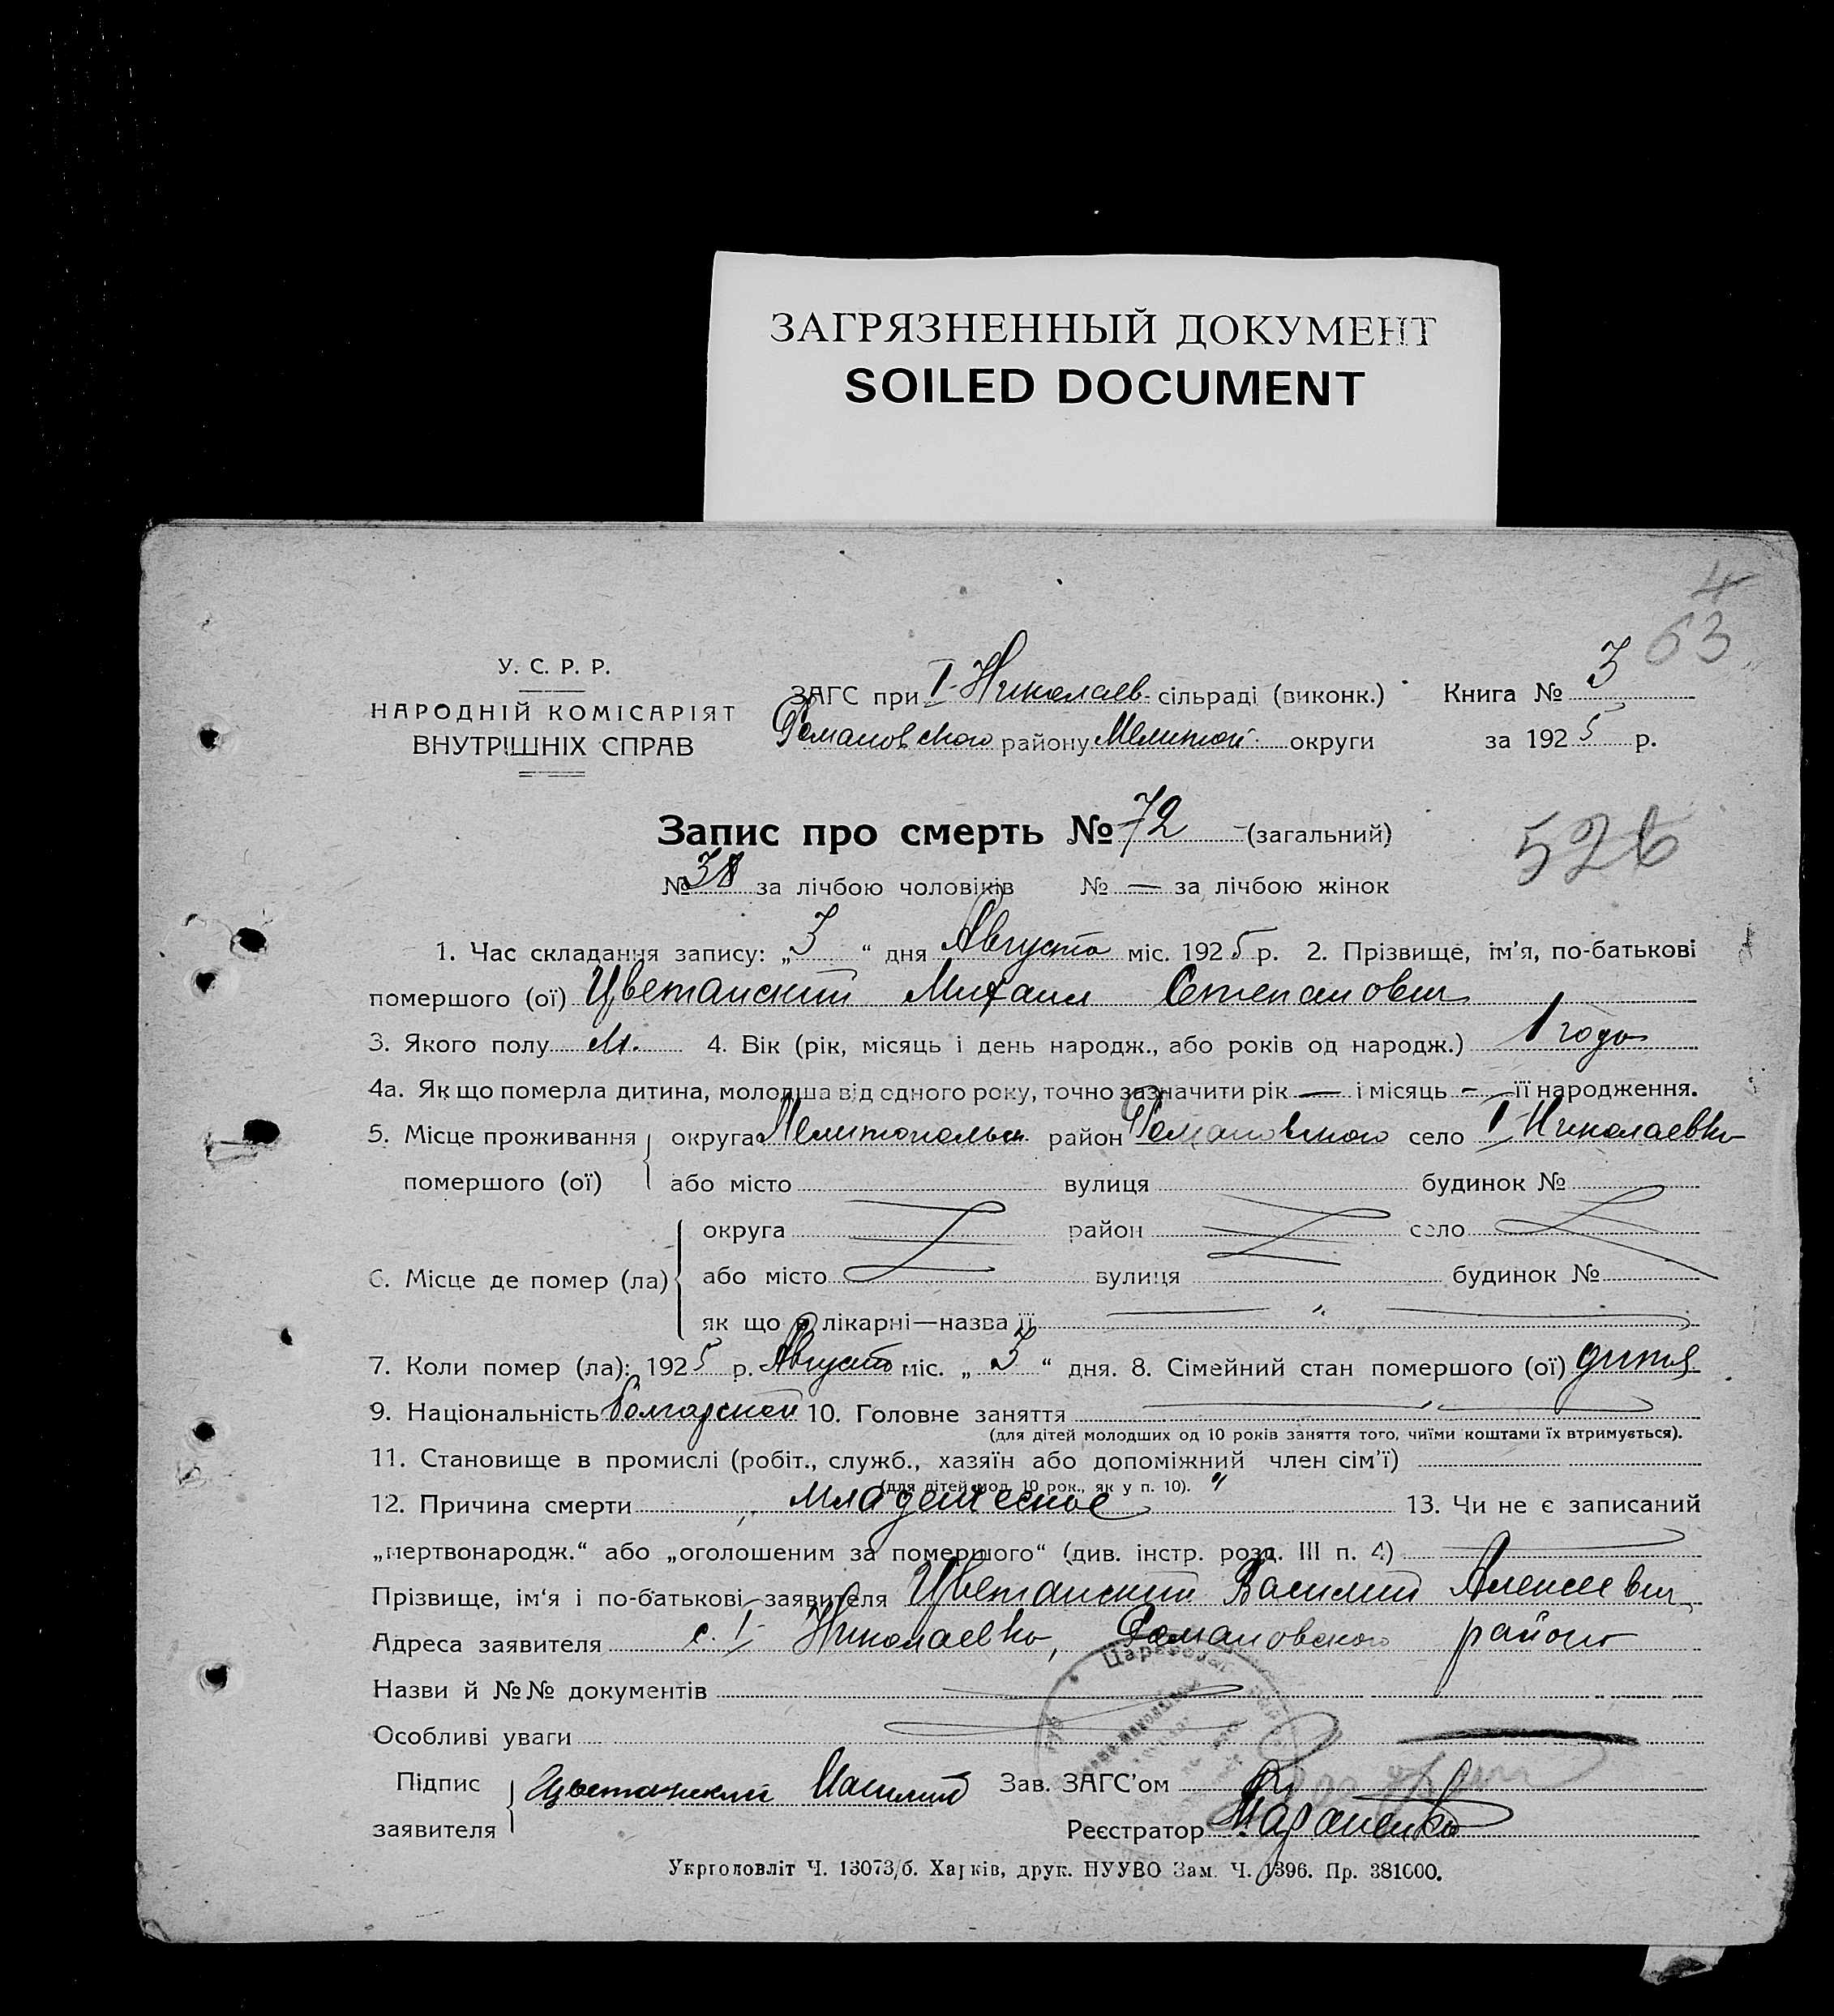 ЗАГРЯЗНЕННЫЙ ДОКУМЕНТ
SOILED DOCUMENT
4
63
У. С. Р. Р.
НАРОДНІЙ КОМІСАРІЯТ
ВНУТРІШНІХ СПРАВ
ЗАГС при I-Николаев- сільраді (виконк.) Книга № 3
Романовского району Мелитоп. округи за 1925 р.
Запис про смерть № 72 (загальний)
526
№ 38 за лічбою чоловіків № — за лічбою жінок
1. Час складання запису: „3“ дня Августа міс. 1925 р. 2. Прізвище, ім'я, по-батькові
помершого (ої) Цветанский Михаил Степанович
3. Якого полу м. 4. Вік (рік, місяць і день народж., або років од народж.) 1 год
4а. Як що померла дитина, молодша від одного року, точно зазначити рік — і місяць — її народження.
5. Місце проживання округа Мелитопольск район Романовского село I Николаевка
помершого (ої) або місто вулиця будинок №
округа район село
6. Місце де помер (ла) або місто вулиця будинок №
як що в лікарні—назва її
7. Коли помер (ла): 1925 р. Августа міс. „3“ дня. 8. Сімейний стан помершого (ої) дитя
9. Національність болгарской 10. Головне заняття
(для дітей молодших од 10 років заняття того, чиїми коштами їх втримується).
11. Становище в промислі (робіт., служб., хазяїн або допоміжний член сім'ї)
(для дітей мол. 10 рок., як у п. 10).
12. Причина смерти „младенческое“ 13. Чи не є записаний
„мертвонародж.“ або „оголошеним за помершого“ (див. інстр. розд. III п. 4)
Прізвище, ім'я і по-батькові заявителя Цветанский Василий Алексеевич
Адреса заявителя с. I- Николаевка, Романовского района
Назви й №№ документів
Особливі уваги
Підпис
заявителя Цветанский Василий Зав. ЗАГС'ом
Реєстратор Тараненко
Укрголовліт Ч. 13073/б. Харків, друк. ПУУВО Зам. Ч. 1396. Пр. 381000.